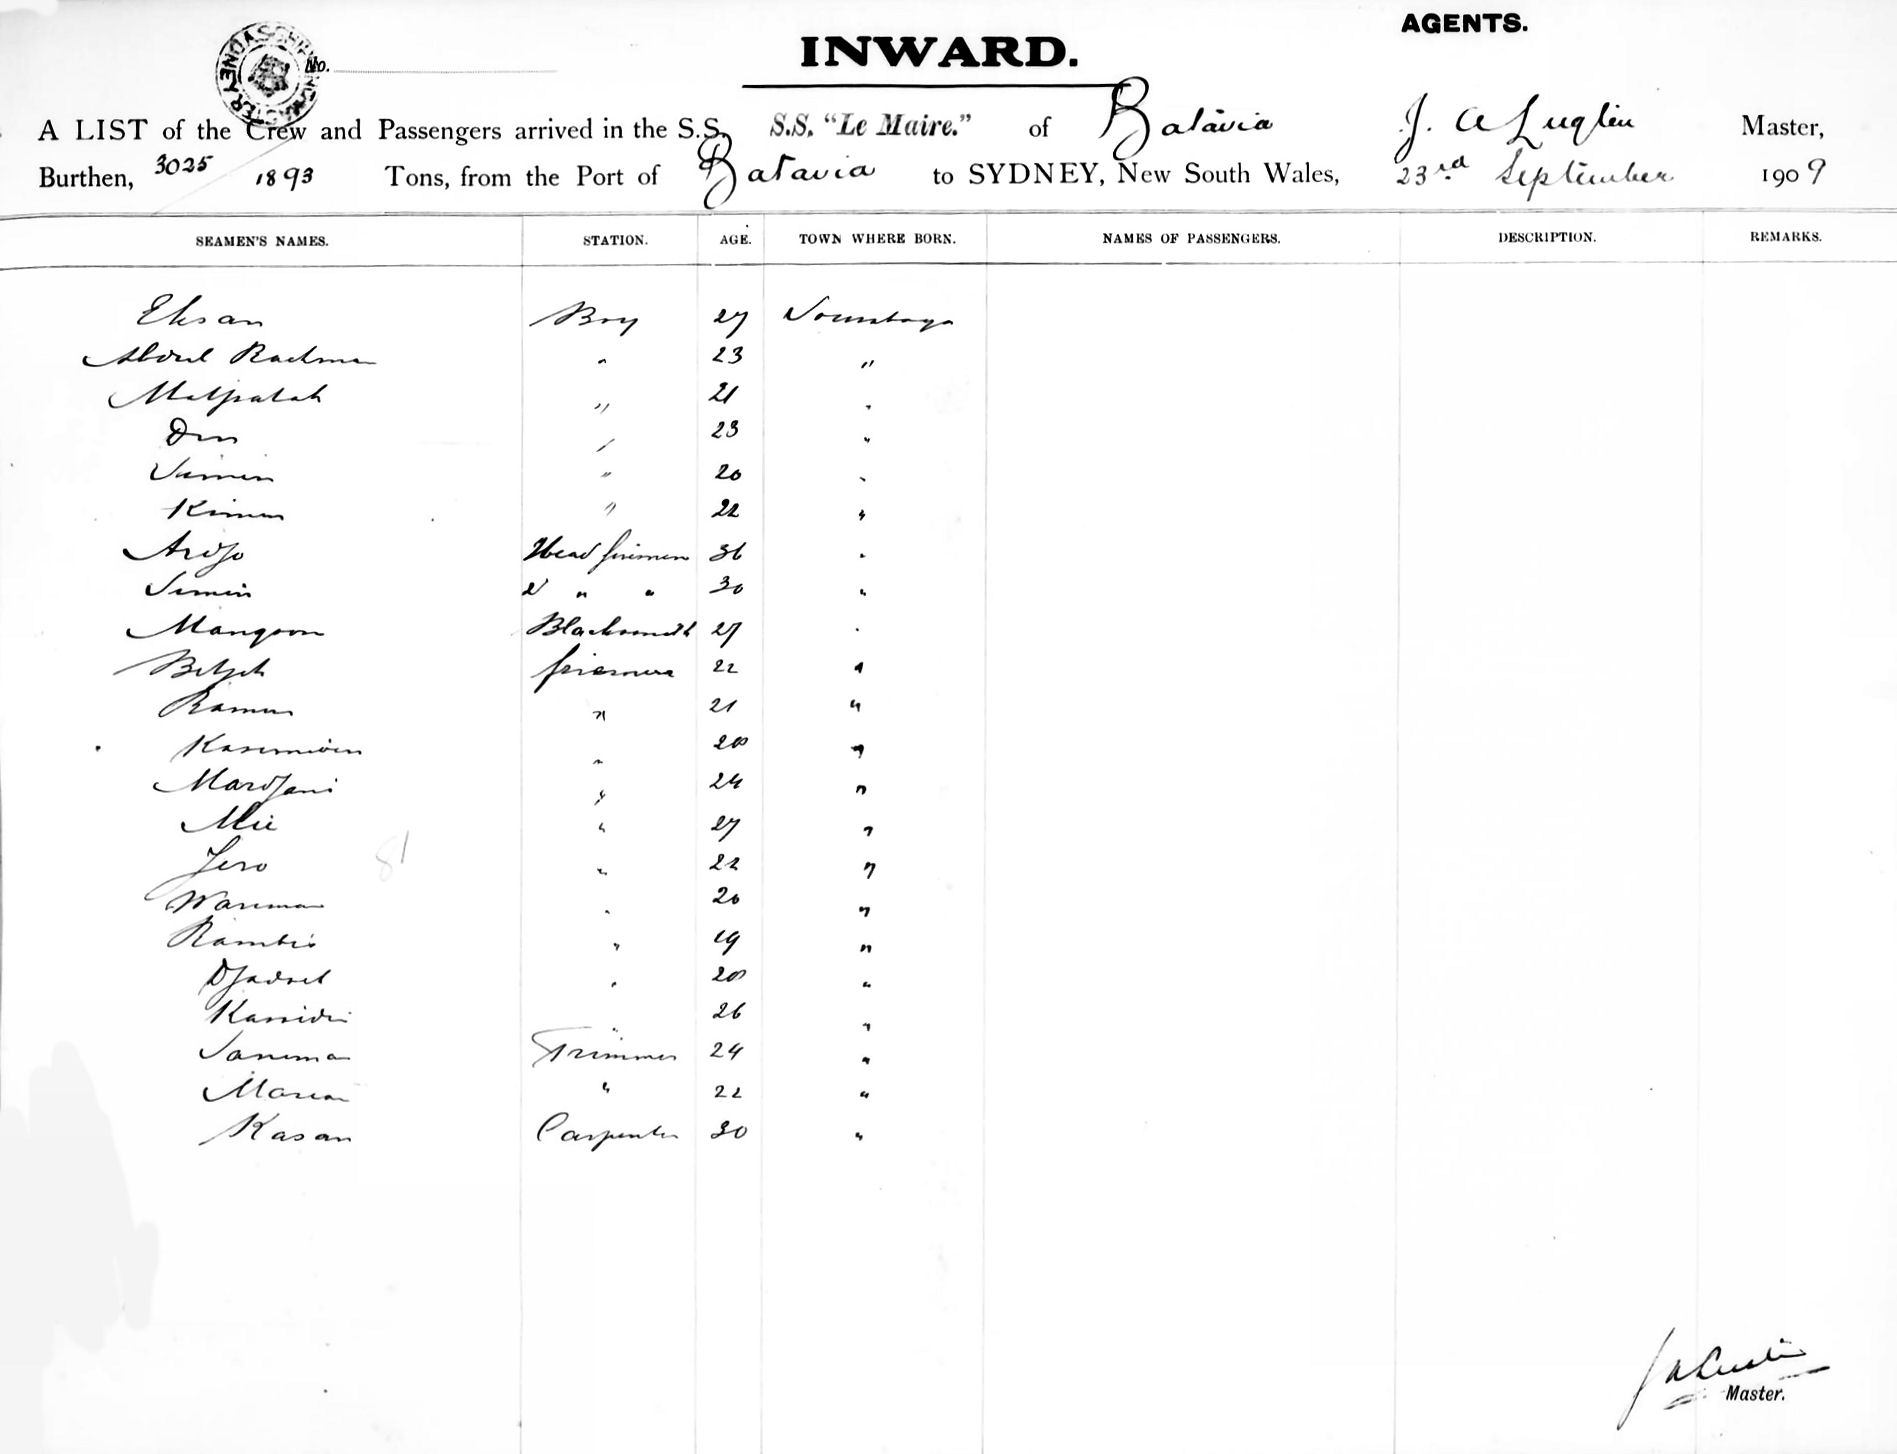 AGENTS.
INWARD.
No.
A LIST of the Crew and Passengers arrived in the S.S. S.S. "Le Maire." of Batavia J. A Luglin Master,
Burthen, 3025 1893 Tons, from the Port of Batavia to SYDNEY, New South Wales, 23rd September 1909
SEAMEN'S NAMES. STATION. AGE. TOWN WHERE BORN. NAMES OF PASSENGERS. DESCRIPTION. REMARKS.
Eksan Boy 27 Sourabaya
Abdul Rachman " 23 "
Matpatah " 21 "
Din " 23 "
Simin " 20 "
Kiman " 22 "
Ardjo Head firemen 36 "
Simin 2 " " 30 "
Mangoon Blacksmith 27 "
firemen 22 "
Raman " 21 "
Kasimin " 20 "
Mardjani " 24 "
Mie " 27 "
Jero " 22 "
Wariman " 20 "
Rambi " 19 "
" 20 "
Kassidi " 26 "
Sariman Trimmer 24 "
" 22 "
Kasan Carpenter 30 "
81
Master.